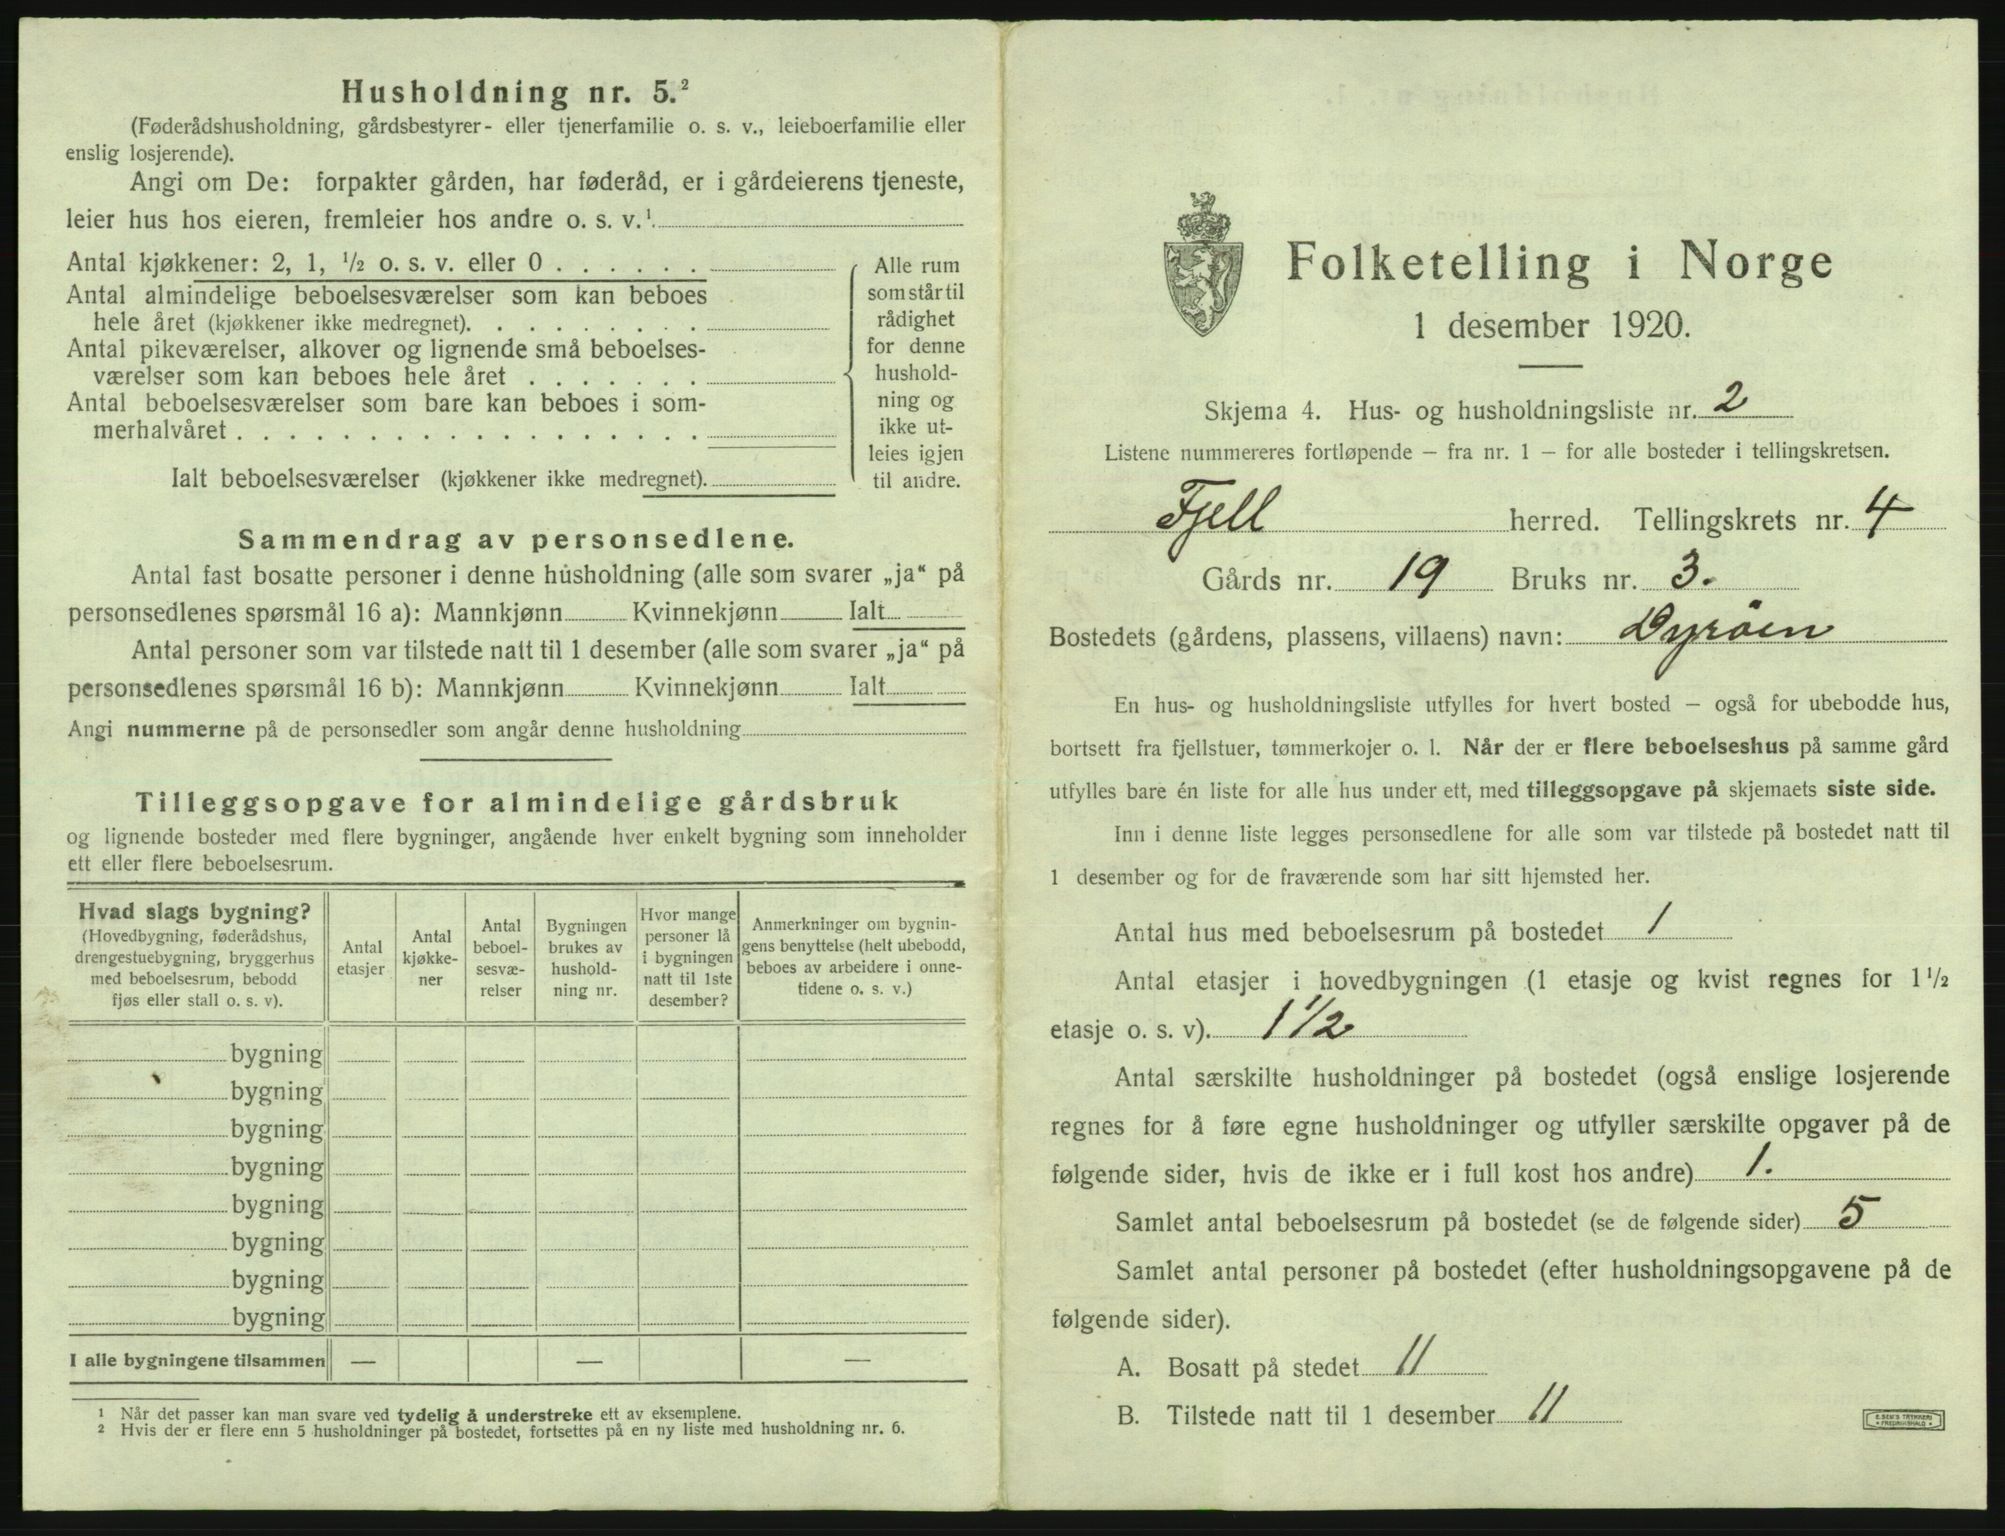 Husholdning nr. 5.²
(Føderådshusholdning, gårdsbestyrer- eller tjenerfamilie o. s. v., leieboerfamilie eller
enslig losjerende).
Angi om De: forpakter gården, har føderåd, er i gårdeierens tjeneste,
leier hus hos eieren, fremleier hos andre o. s. v.¹
Antal kjøkkener: 2, 1, ½ o. s. v. eller 0 . . . . . .
Antal almindelige beboelsesværelser som kan beboes
hele året (kjøkkener ikke medregnet). . . . . . . . .
Antal pikeværelser, alkover og lignende små beboelses-
værelser som kan beboes hele året . . . . . . .
Antal beboelsesværelser som bare kan beboes i som-
merhalvåret . . . . . . . . . . . . . . . . . .
Ialt beboelsesværelser (kjøkkener ikke medregnet).
Alle rum
som står til
rådighet
for denne
hushold-
ning og
ikke ut-
leies igjen
til andre.
Sammendrag av personsedlene.
Antal fast bosatte personer i denne husholdning (alle som svarer „ja“ på
personsedlenes spørsmål 16 a): Mannkjønn Kvinnekjønn Ialt
Antal personer som var tilstede natt til 1 desember (alle som svarer „ja“ på
personsedlenes spørsmål 16 b): Mannkjønn Kvinnekjønn Ialt
Angi nummerne på de personsedler som angår denne husholdning
Tilleggsopgave for almindelige gårdsbruk
og lignende bosteder med flere bygninger, angående hver enkelt bygning som inneholder
ett eller flere beboelsesrum.
Hvad slags bygning?
(Hovedbygning, føderådshus,
drengestuebygning, bryggerhus
med beboelsesrum, bebodd
fjøs eller stall o. s. v).
Antal
etasjer
Antal
kjøkke-
ner
Antal
beboel-
sesvæ-
relser
Bygningen
brukes av
hushold-
ning nr.
Hvor mange
personer lå
i bygningen
natt til 1ste
desember?
Anmerkninger om bygnin-
gens benyttelse (helt ubebodd,
beboes av arbeidere i onne-
tidene o. s. v.)
bygning
bygning
bygning
bygning
bygning
bygning
bygning
bygning
I alle bygningene tilsammen — — —
¹ Når det passer kan man svare ved tydelig å understreke ett av eksemplene.
² Hvis der er flere enn 5 husholdninger på bostedet, fortsettes på en ny liste med husholdning nr. 6.
Folketelling i Norge
1 desember 1920.
Skjema 4. Hus- og husholdningsliste nr. 2
Listene nummereres fortløpende – fra nr. 1 – for alle bosteder i tellingskretsen.
Fjell herred. Tellingskrets nr. 4
Gårds nr. 19 Bruks nr. 3.
Bostedets (gårdens, plassens, villaens) navn: Dyröen
En hus- og husholdningsliste utfylles for hvert bosted – også for ubebodde hus,
bortsett fra fjellstuer, tømmerkojer o. l. Når der er flere beboelseshus på samme gård
utfylles bare én liste for alle hus under ett, med tilleggsopgave på skjemaets siste side.
Inn i denne liste legges personsedlene for alle som var tilstede på bostedet natt til
1 desember og for de fraværende som har sitt hjemsted her.
Antal hus med beboelsesrum på bostedet 1
Antal etasjer i hovedbygningen (1 etasje og kvist regnes for 1½
etasje o. s. v). 1½
Antal særskilte husholdninger på bostedet (også enslige losjerende
regnes for å føre egne husholdninger og utfyller særskilte opgaver på de
følgende sider, hvis de ikke er i full kost hos andre) 1.
Samlet antal beboelsesrum på bostedet (se de følgende sider) 5
Samlet antal personer på bostedet (efter husholdningsopgavene på de
følgende sider).
A. Bosatt på stedet 11
B. Tilstede natt til 1 desember 11
E. SEM'S TRYKKERI
FREDRIKSHALD